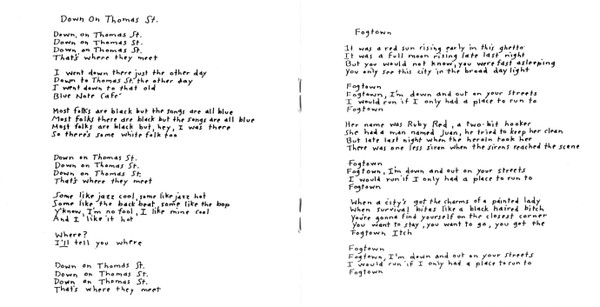 Down On Thomas St.
Down on Thomas St.
Down on Thomas St.
Down on Thomas St.
That's where they meet
I went down there just the other day
Down to Thomas St. the other day
I went down to that old
Blue Note Cafe'
Most folks are black but the songs are all blue
Most folks there are black but the songs are all blue
Most folks are black but, hey, I was there
So there's some white folk too
Down on Thomas St.
Down on Thomas St.
Down on Thomas St.
That's where they meet
Some like jazz cool, some like jazz hot
Some like the back beat, some like the bop
Y'know, I'm no fool, I like mine cool
And I like it hot
Where?
I'll tell you where
Down on Thomas St.
Down on Thomas St.
Down on Thomas St.
That's where they meet
Fogtown
It was a red sun rising early in this ghetto
It was a full moon rising late last night
But you would not know, you were fast asleeping
You only see this city in the broad day light
Fogtown
Fogtown, I'm down and out on your streets
I would run if I only had a place to run to
Fogtown
Her name was Ruby Red, a two-bit hooker
She had a man named Juan, he tried to keep her clean
But late last night when the heroin took her
There was one less siren when the sirens reached the scene
Fogtown
Fogtown, I'm down and out on your streets
I would run if I only had a place to run to
Fogtown
When a city's got the charms of a painted lady
When survival bites like a black haired bitch
You're gonna find yourself on the closest corner
You want to stay, you want to go, you got the
Fogtown Itch
Fogtown
Fogtown, I'm down and out on your streets
I would run if I only had a place to run to
Fogtown